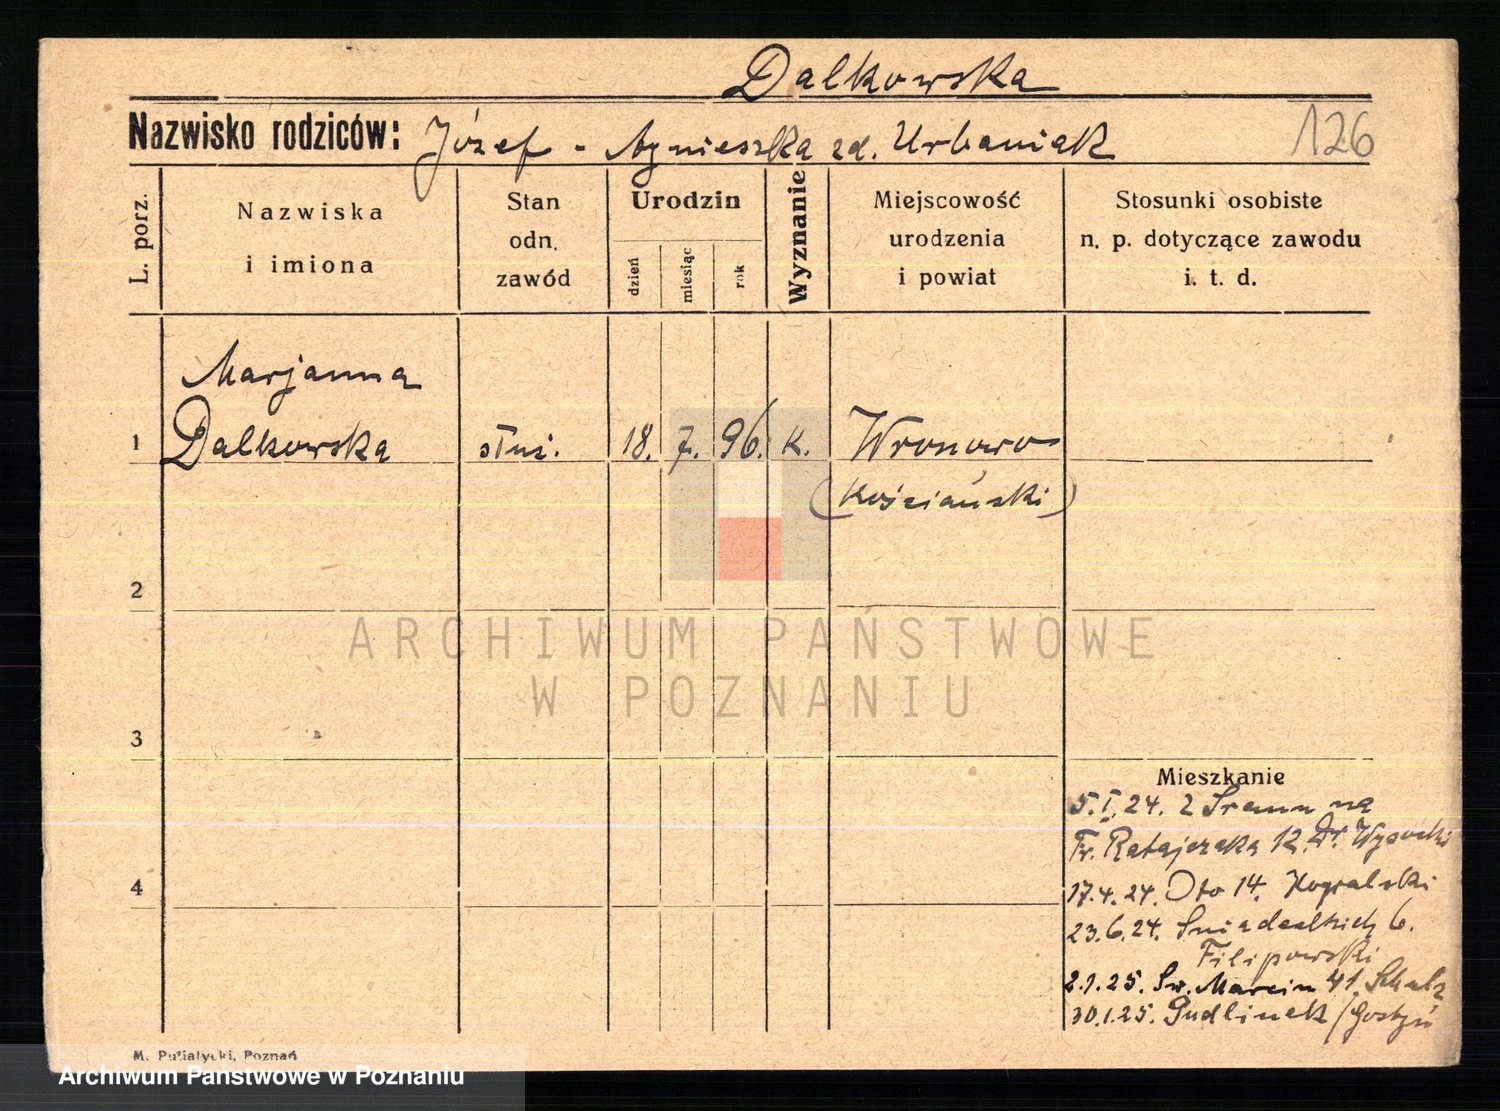 Dalkowska
Nazwisko rodziców: Józef - Agnieszka zd. Urbaniak
126
L. porz.
Nazwiska
i imiona
Stan
odn.
zawód
Urodzin
dzień
miesiąc
rok
Wyznanie
Miejscowość
urodzenia
i powiat
Stosunki osobiste
n. p. dotyczące zawodu
i. t. d.
Marjanna
1 Dalkowska służ. 18. 7. 96. k. Wronowo
(Kościański)
2
ARCHIWUM PAŃSTWOWE
W POZNANIU
3
Mieszkanie
5.I.24. z Śremu na
Fr. Ratajczaka 12. Dr. Wysocki
4
17.4.24. Oto 14.
23.6.24. Śniadeckich 6.
Filipowski
2.1.25. Św. Marcin 41 Schulz
30.1.25. Gudlinek /Gostyń
M. Putiatycki, Poznań
Archiwum Państwowe w Poznaniu